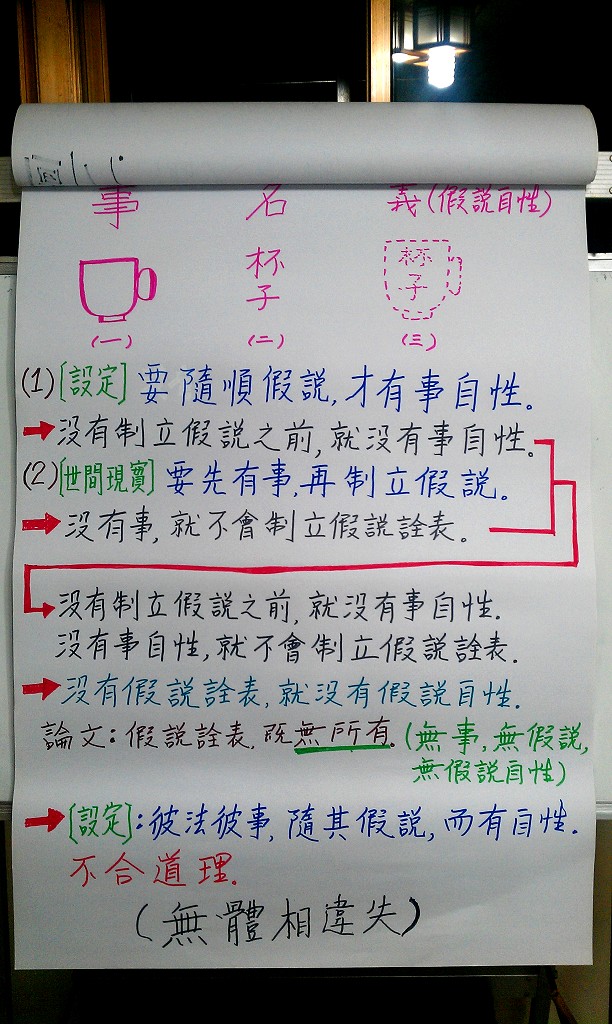 事 名 義(假說自性)
杯子 杯子
(一) (二) (三)
(1)[設定] 要隨順假說,才有事自性。
→沒有制立假說之前,就沒有事自性。
(2)[世間現實] 要先有事,再制立假說。
→沒有事,就不會制立假說詮表。
→沒有制立假說之前,就沒有事自性.
沒有事自性,就不會制立假說詮表.
→沒有假說詮表,就沒有假說自性.
論文:假說詮表,既無所有.(無事,無假説,
無假說自性)
→[設定]:彼法彼事,隨其假說,而有自性.
不合道理.
(無體相違失)